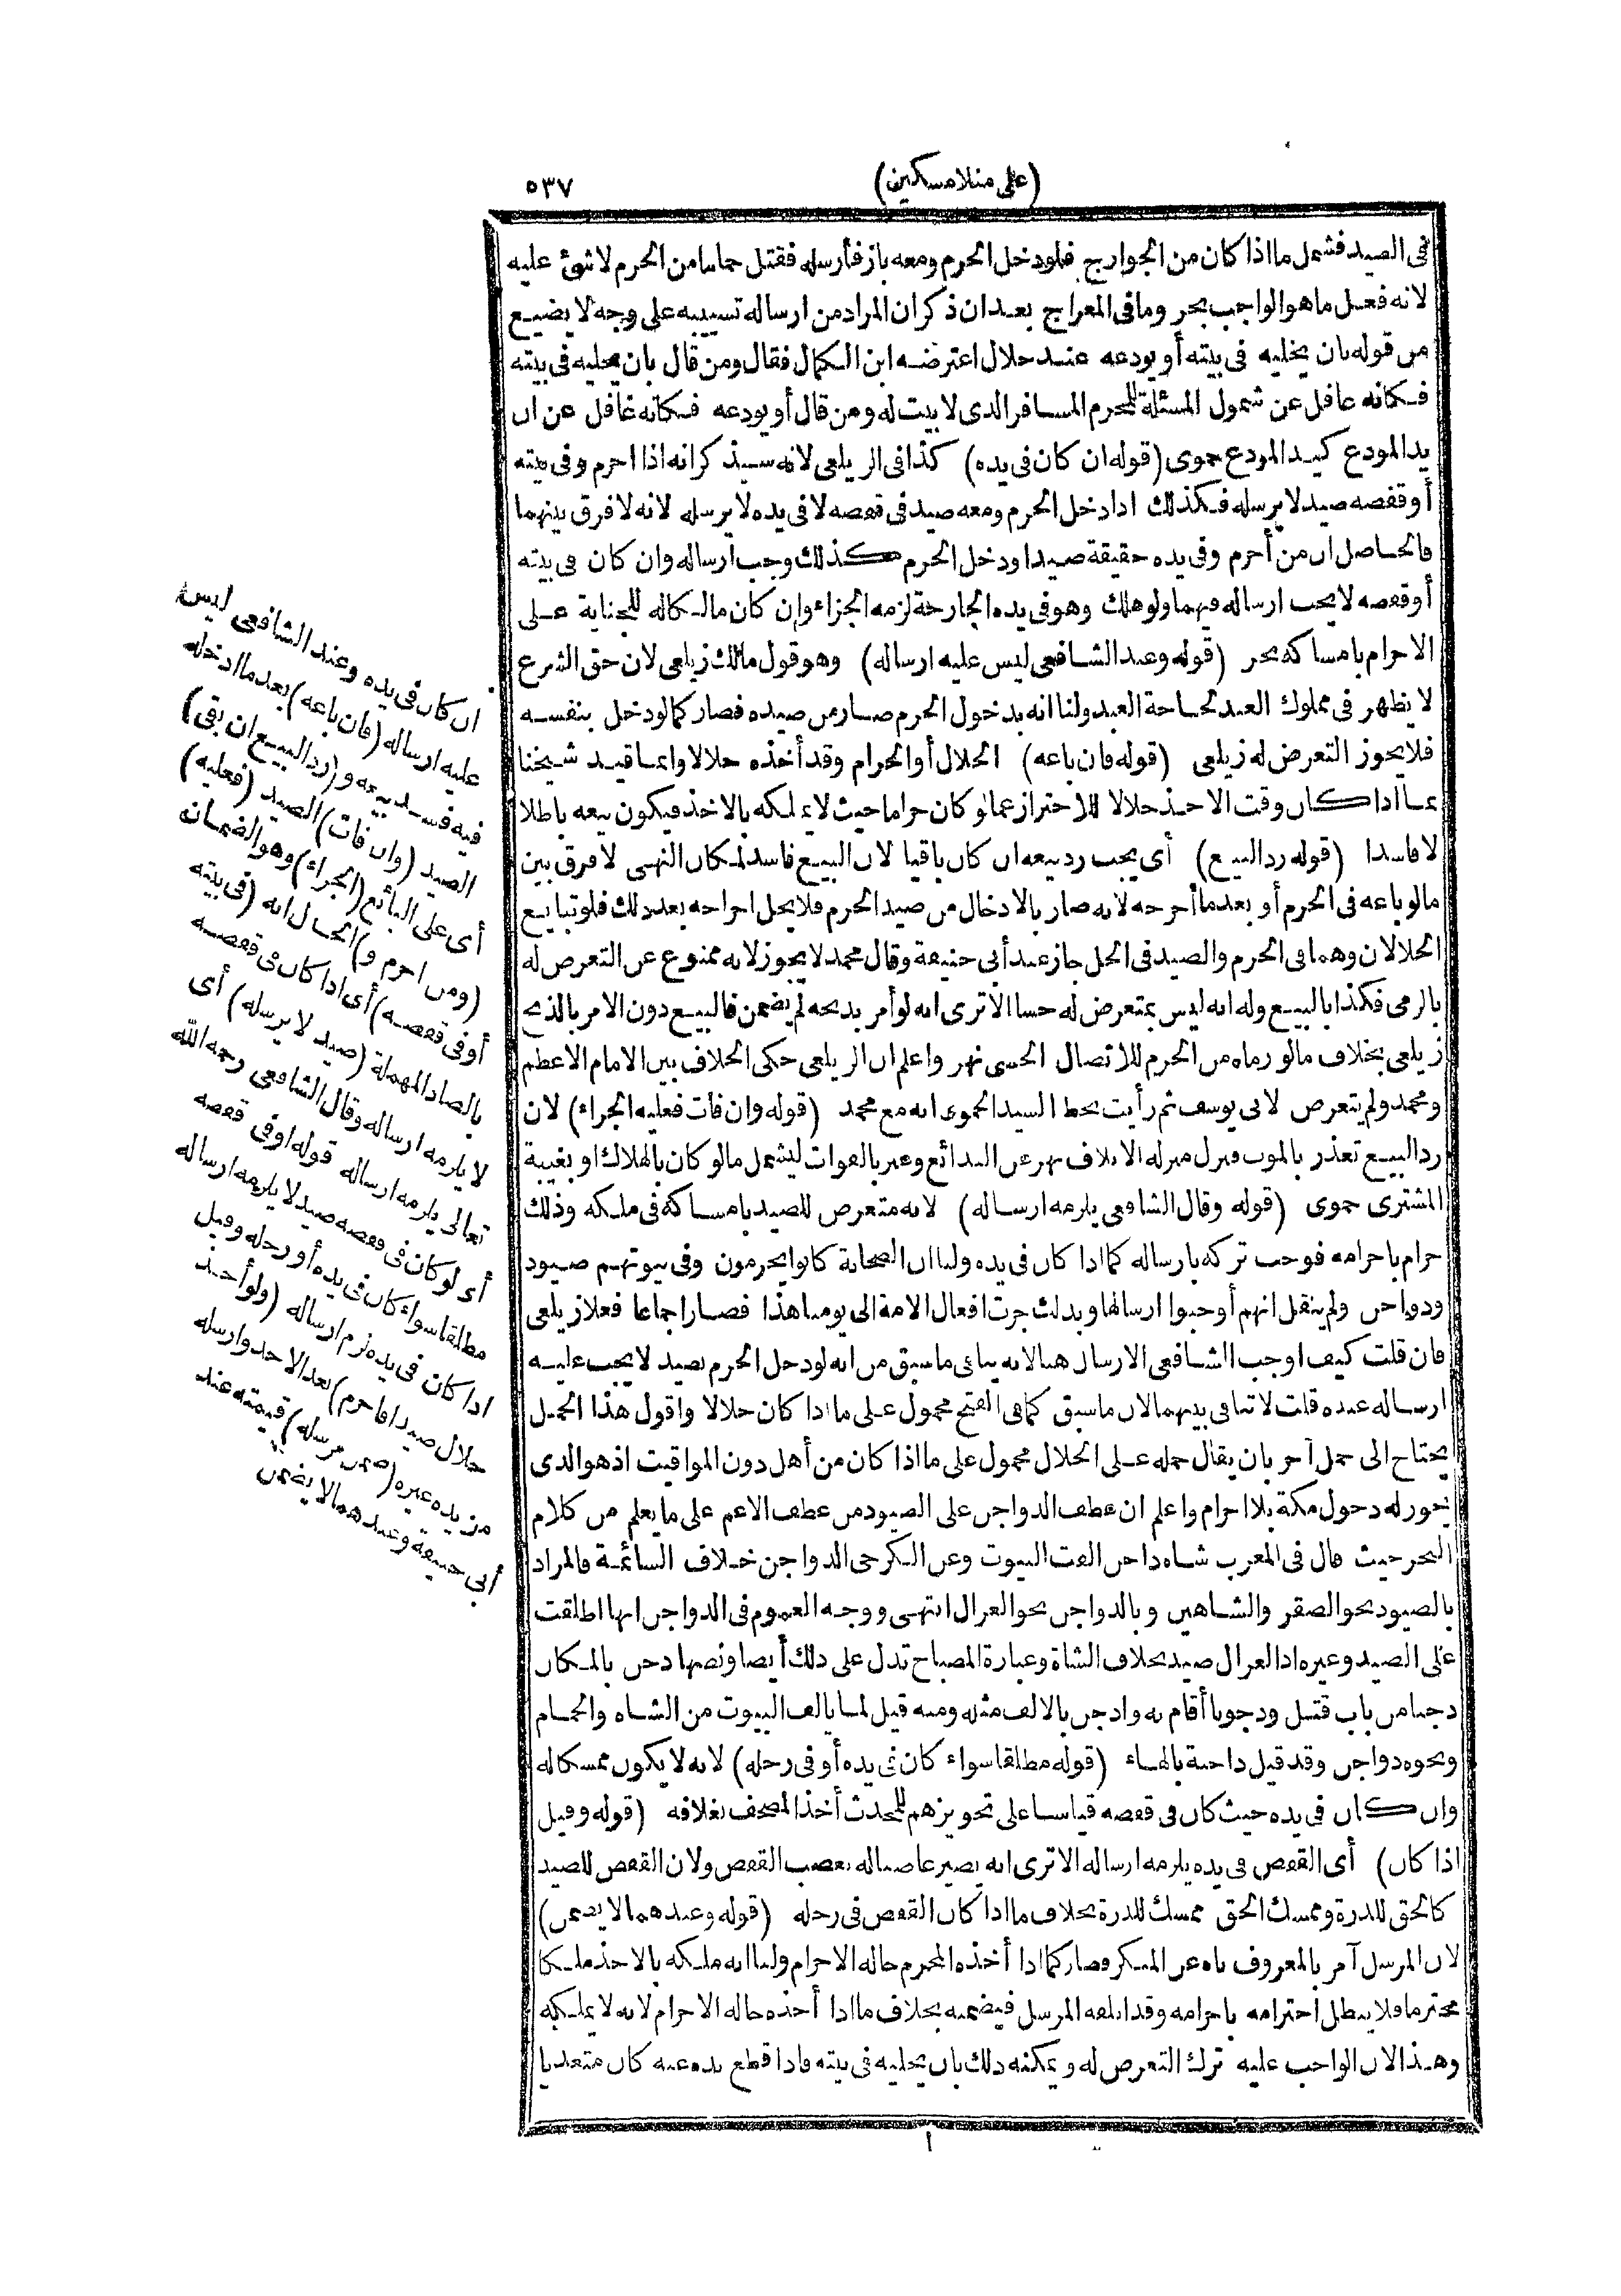 (على منلا مسكين)
٥٣٧
فى الصيد فشمل ما اذا كان من الجوارح فلو دخل الحرم ومعه باز فأرسله فقتل حماما من الحرم لا شئ عليه
لانه فعل ما هو الواجب بحر وما فى المعراج بعد ان ذكر ان المراد من ارساله تسييبه على وجه لا يضيع
من قوله بان يخليه فى بيته أو يودعه عند حلال اعترضه ابن الكمال فقال ومن قال بان يخليه فى بيته
فكانه غافل عن شمول المسئلة للمحرم المسافر الذى لا بيت له ومن قال أو يودعه فكانه غافل عن ان
يد المودع كيد المودع حموى (قوله ان كان فى يده) كذا فى الزيلعى لانه سيذكر انه اذا احرم وفى بيته
أو قفصه صيد لا يرسله فكذلك اذا دخل الحرم ومعه صيد فى قفصه لا فى يده لا يرسله لانه لا فرق بينهما
فالحاصل ان من أحرم وفى يده حقيقة صيد او دخل الحرم كذلك وجب ارساله وان كان فى بيته
أو قفصه لا يجب ارساله فيهما ولو هلك وهو فى يده الجارحة لزمه الجزاء وان كان مالكا له للجناية على
الاحرام بامساكه بحر (قوله وعند الشافعى ليس عليه ارساله) وهو قول مالك زيلعى لان حق الشرع
لا يظهر فى مملوك العبد لحاجة العبد ولنا انه بدخول الحرم صار من صيده فصار كما لو دخل بنفسه
فلا يجوز التعرض له زيلعى (قوله فان باعه) الحلال أو الحرام وقد أخذه حلالا وانما قيد شيخنا
بما اذا كان وقت الاخذ حلالا للاحتراز عما لو كان حراما حيث لا يملكه بالاخذ فيكون بيعه باطلا
لا فاسدا (قوله رد البيع) أى يجب رد بيعه ان كان باقيا لان البيع فاسد لمكان النهى لا فرق بين
ما لو باعه فى الحرم أو بعد ما أخرجه لانه صار بالادخال من صيد الحرم فلا يحل اخراجه بعد ذلك فلو تبايع
الحلالان وهما فى الحرم والصيد فى الحل جاز عند أبى حنيفة وقال محمد لا يجوز لانه ممنوع عن التعرض له
بالرمى فكذا بالبيع وله انه ليس بمتعرض له حسا الا ترى انه لو أمر بذبحه لم يضمن فالبيع دون الامر بالذبح
زيلعى بخلاف ما لو رماه من الحرم للاتصال الحسى نهر واعلم ان الزيلعى حكى الخلاف بين الامام الاعظم
ومحمد ولم يتعرض لابى يوسف ثم رأيت بخط السيد الحموى انه مع محمد (قوله وان فات فعليه الجزاء) لان
رد البيع تعذر بالموت فنزل منزلة الاتلاف نهر عن البدائع وعبر بالفوات ليشمل ما لو كان بالهلاك او بغيبة
المشترى حموى (قوله وقال الشافعى يلزمه ارساله) لانه متعرض للصيد بامساكه فى ملكه وذلك
حرام باحرامه فوجب تركه بارساله كما اذا كان فى يده ولنا ان الصحابة كانوا يحرمون وفى بيوتهم صيود
ودواجن ولم ينقل انهم أوجبوا ارسالها وبذلك جرت افعال الامة الى يومنا هذا فصار اجماعا فعلا زيلعى
فان قلت كيف اوجب الشافعى الارسال هنا لانه ينافى ما سبق من انه لو دخل الحرم بصيد لا يجب عليه
ارساله عنده قلت لا تنافى بينهما لان ما سبق كما فى الفتح محمول على ما اذا كان حلالا واقول هذا الحمل
يحتاج الى حمل آخر بان يقال حمله على الحلال محمول على ما اذا كان من أهل دون المواقيت اذ هو الذى
يجوز له دخول مكة بلا احرام واعلم ان عطف الدواجن على الصيود من عطف الاعم على ما يعلم من كلام
البحر حيث قال فى المغرب شاه داجن الفت البيوت وعن الكرخى الدواجن خلاف السائمة فالمراد
بالصيود نحو الصقر والشاهين وبالدواجن نحو الغزال انتهى ووجه العموم فى الدواجن انها اطلقت
على الصيد وغيره اذ الغزال صيد بخلاف الشاة وعبارة المصباح تدل على ذلك أيضا ونصها دجن بالمكان
دجنا من باب قتل ودجونا أقام به وادجن بالالف مثله ومنه قيل لما يالف البيوت من الشاه والحمام
ونحوه دواجن وقد قيل داجنة بالهاء (قوله مطلقا سواء كان فى يده أو فى رحله) لانه لا يكون ممسكا له
وان كان فى يده حيث كان فى قفصه قياسا على تجويزهم للمحدث أخذ المصحف بغلافه (قوله وقيل
اذا كان) أى القفص فى يده يلزمه ارساله الا ترى انه يصير غاصبا له بغصب القفص ولان القفص للصيد
كالحق للدرة وممسك الحق ممسك للدرة بخلاف ما اذا كان القفص فى رحله (قوله وعندهما لا يضمن)
لان المرسل آمر بالمعروف ناه عن المنكر وصار كما اذا أخذه المحرم حاله الاحرام ولنا انه ملكه بالاخذ ملكا
محترما فلا يبطل احترامه باحرامه وقد اتلفه المرسل فيضمنه بخلاف ما اذا أخذه حاله الاحرام لانه لا يملكه
وهذا لان الواجب عليه ترك التعرض له ويمكنه ذلك بان يخليه فى بيته فاذا قطع يده عنه كان متعديا
ان كان فى يده وعند الشافعى ليس
عليه ارساله (فان باعه) بعد ما ادخله
فيه فسد بيعه و(رد البيع ان بقى)
الصيد (وان فات) الصيد (فعليه)
أى على البائع (الجزاء) وهو الضمان
(ومن احرم و) الحال انه (فى بيته
أو فى قفصه) أى اذا كان فى قفصه
بالصاد المهملة (صيد لا يرسله) أى
لا يلزمه ارساله وقال الشافعى رحمه الله
تعالى يلزمه ارساله قوله او فى قفصه
أى لو كان فى قفصه صيد لا يلزمه ارساله
مطلقا سواء كان فى يده أو رحله وقيل
اذا كان فى يده لزم ارساله (ولو أخذ
حلال صيدا فاحرم) بعد الاخذ وارسله
من يده غيره (ضمن مرسله) قيمته عند
أبى حنيفة وعندهما لا يضمن